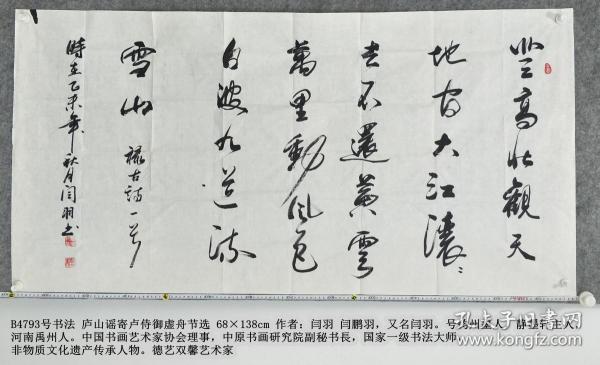 登高壮观天
地官大江濃〻
去不還黄雲
萬里動風色
白波九道流
雪山 禄古詩一首
時在乙未年秋月闫羽书
B4793号书法 庐山谣寄卢侍御虚舟节选 68×138cm 作者：闫羽 闫鹏羽，又名闫羽。号
河南禹州人。中国书画艺术家协会理事，中原书画研究院副秘书長，国家一级书法大师，
非物质文化遗产传承人物。德艺双馨艺术家
孔夫子旧书网